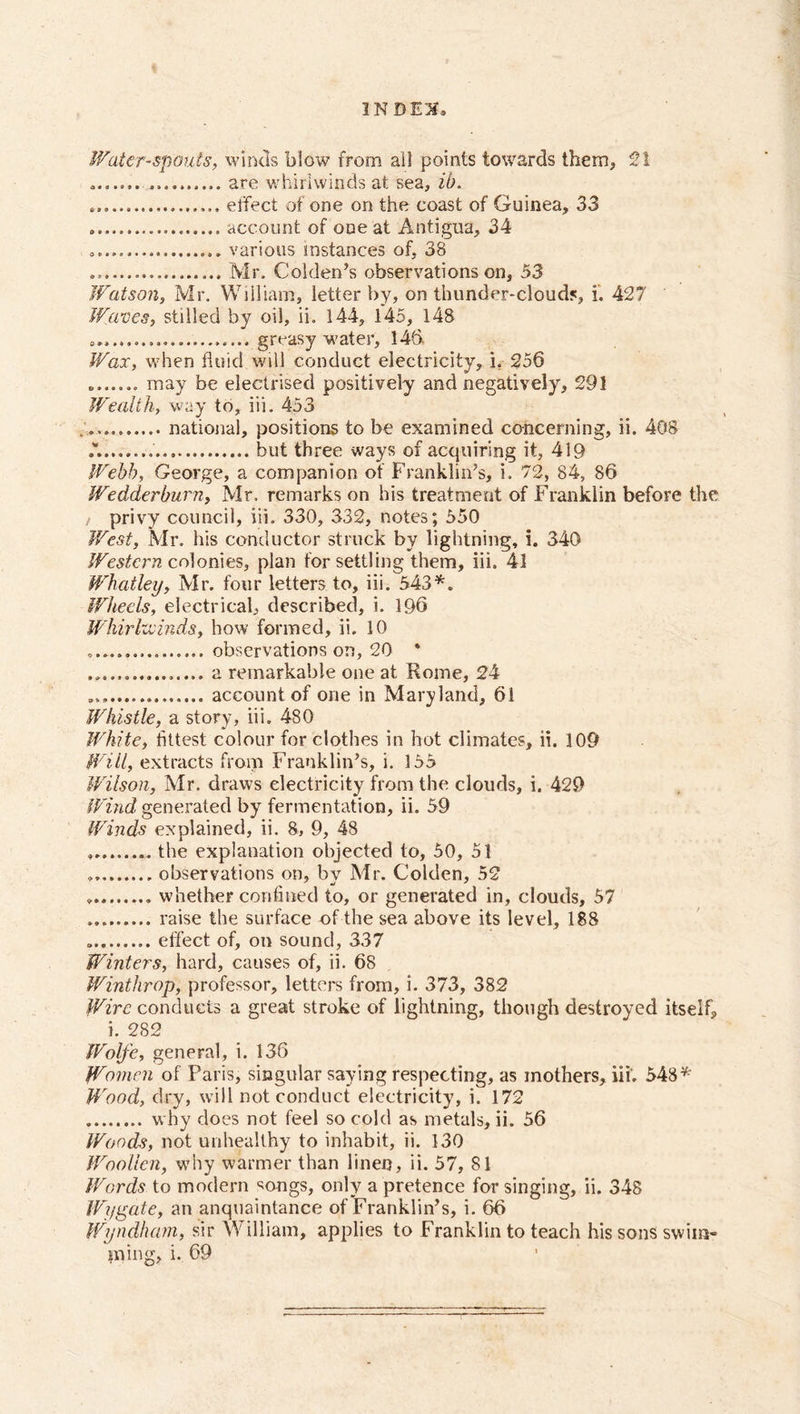 INDEX.
Water-spouts, winds blow from all points towards them, 21
.................. are whirlwinds at sea, ib.
.................. effect of one on the coast of Guinea, 33
.................. account of one at Antigua, 34
.................. various instances of, 38
.................. Mr. Colden's observations on, 53
Watson, Mr. William, letter by, on thunder-clouds, i. 427
Waves, stilled by oil, ii. 144, 145, 148
...................... greasy water, 146
Wax, when fluid will conduct electricity, i. 256
....... may be electrised positively and negatively, 291
Wealth, way to, iii. 453
........... national, positions to be examined concerning, ii. 408
...................... but three ways of acquiring it, 419
Webb, George, a companion of Franklin's, i. 72, 84, 86
Wedderburn, Mr. remarks on his treatment of Franklin before the
privy council, iii. 330, 332, notes; 550
West, Mr. his conductor struck by lightning, i. 340
Western colonies, plan for settling them, iii. 41
Whatley, Mr. four letters to, iii. 543*.
Wheels, electrical, described, i. 196
Whirlwinds, how formed, ii. 10
................ observations on, 20
................ a remarkable one at Rome, 24
................ account of one in Maryland, 61
Whistle, a story, iii. 480
White, fittest colour for clothes in hot climates, ii. 109
Will, extracts from Franklin's, i. 155
Wilson, Mr. draws electricity from the clouds, i. 429
Wind generated by fermentation, ii. 59
Winds explained, ii. 8, 9, 48
......... the explanation objected to, 50, 51
......... observations on, by Mr. Colden, 52
......... whether confined to, or generated in, clouds, 57
......... raise the surface of the sea above its level, 188
......... effect of, on sound, 337
Winters, hard, causes of, ii. 68
Winthrop, professor, letters from, i. 373, 382
Wire conducts a great stroke of lightning, though destroyed itself,
i. 282
Wolfe, general, i. 136
Women of Paris, singular saying respecting, as mothers, iii. 548*
Wood, dry, will not conduct electricity, i. 172
........ why does not feel so cold as metals, ii. 56
Woods, not unhealthy to inhabit, ii. 130
Woollen, why warmer than linen, ii. 57, 81
Words to modern songs, only a pretence for singing, ii. 348
Wygate, an anquaintance of Franklin's, i. 66
Wyndham, sir William, applies to Franklin to teach his sons swim-
ming, i. 69